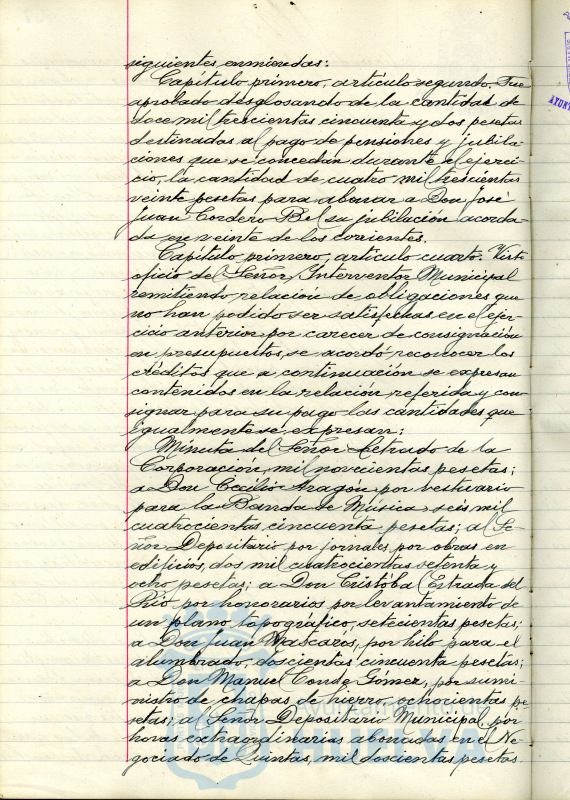 siguientes enmiendas:
Capítulo primero, artículo segundo. Fue
aprobado desglosando de la cantidad de
doce mil trescientas cincuenta y dos pesetas
destinadas al pago de pensiones y jubila-
ciones que se concedan durante el ejerci-
cio, la cantidad de cuatro mil trescientas
veinte pesetas para abonar a Don José
Juan Cordero Bel su jubilación acorda-
da en veinte de los corrientes.
Capítulo primero, artículo cuarto. Visto
oficio del Señor Interventor Municipal
remitiendo relación de obligaciones que
no han podido ser satisfechas en el ejer-
cicio anterior por carecer de consignación
en presupuestos, se acordó reconocer los
créditos que a continuación se expresan
contenidos en la relación referida y con-
signar para su pago las cantidades que
igualmente se expresan:
Minuta del Señor Letrado de la
Corporacion, mil novecientas pesetas;
a Don Cecilio Aragón por vestuario
para la Banda de Música seis mil
cuatrocientas cincuenta pesetas; al Se-
ñor Depositario por jornales por obras en
edificios, dos mil cuatrocientas setenta y
ocho pesetas; a Don Cristóbal Estrada del
Rio por honorarios por levantamiento de
un plano topográfico, setecientas pesetas;
a Don Juan Mascarós, por hilo para el
alumbrado, doscientas cincuenta pesetas;
a Don Manuel Conde Gómez, por sumi-
nistro de chapas de hierro, ochocientas pe-
setas; al Señor Depositario Municipal, por
horas extraordinarias abonadas en el Ne-
gociado de Quintas, mil doscientas pesetas.
Ayuntamiento de
HUELVA
AYUNT